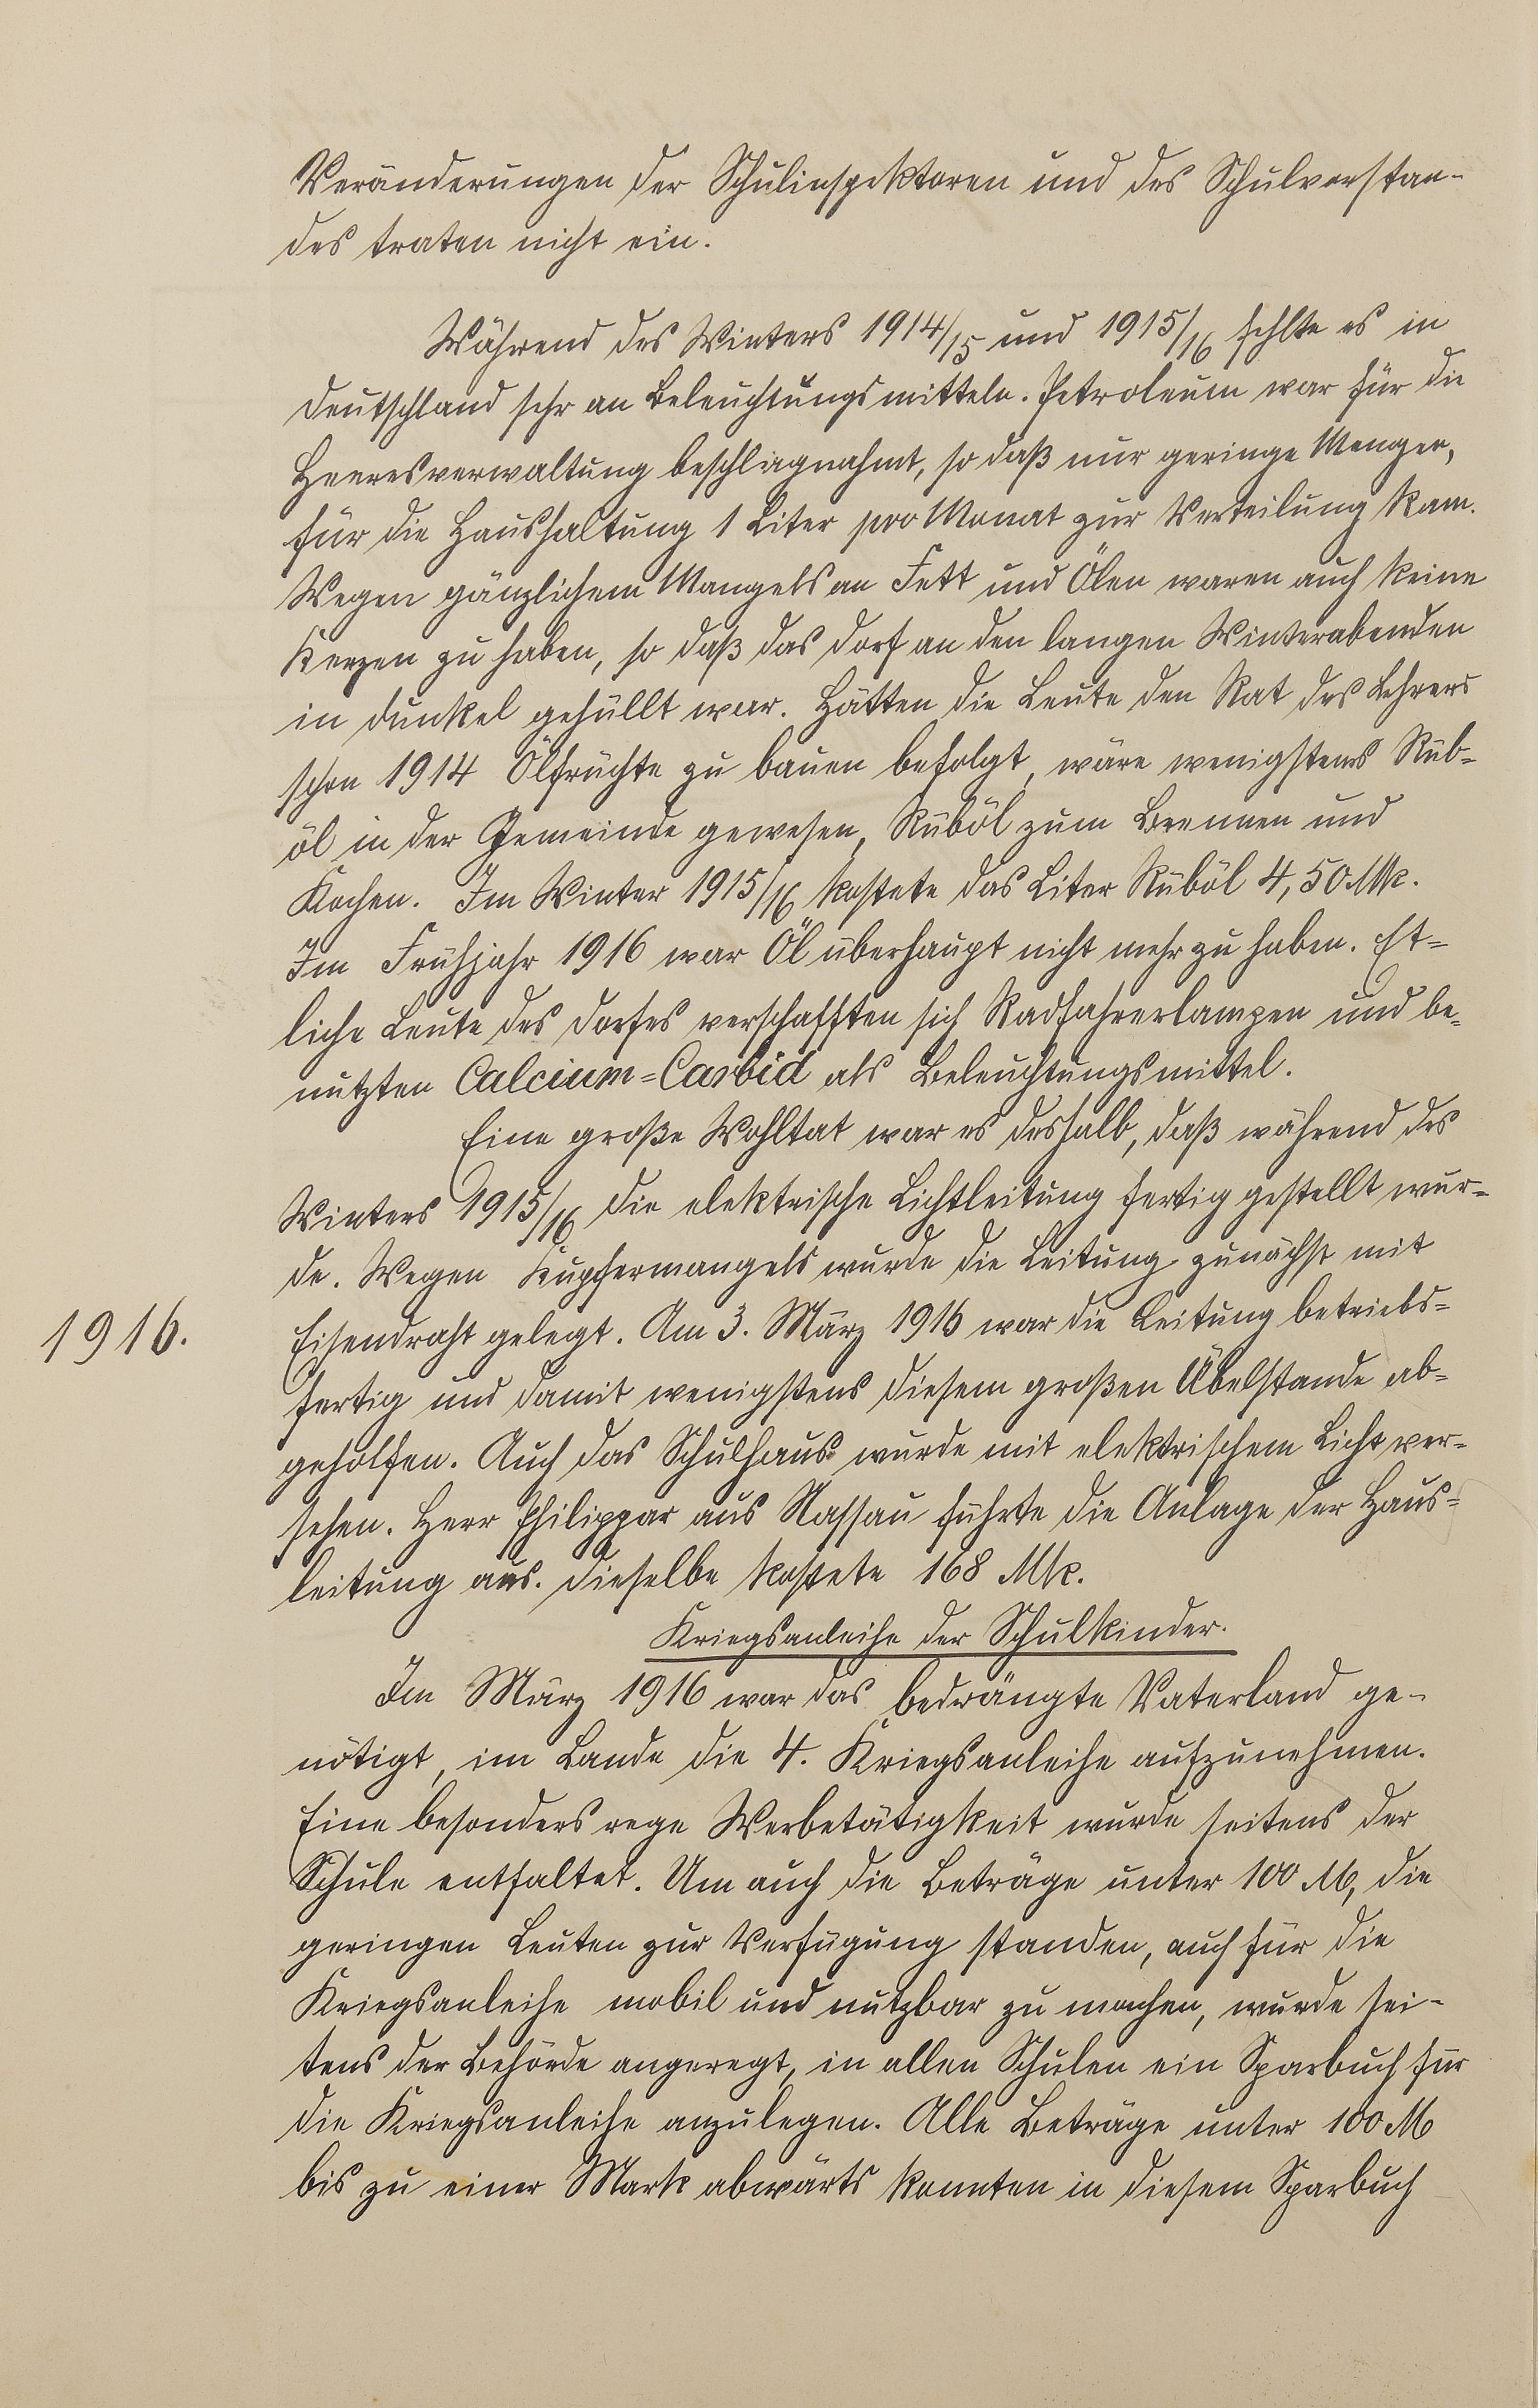 Veränderungen der Schulinspektoren und des Schulvorstan-
des traten nicht ein.
Während des Winters 1914/15 und 1915/16 fehlte es in
Deutschland sehr an Beleuchtungsmitteln. Petroleum war für die
Heeresverwaltung beschlagnahmt, so daß nur geringe Mengen,
für die Haushaltung 1 Liter pro Monat zur Verteilung kam.
Wegen gänzlichem Mangels an Fett und Ölen waren auch keine
Kerzen zu haben, so daß das Dorf an den langen Winterabenden
in Dunkel gehüllt war. Hätten die Leute den Rat des Lehrers
schon 1914 Ölfrüchte zu bauen befolgt, wäre wenigstens Rüb-
öl in der Gemeinde gewesen, Rüböl zum Brennen und
Kochen. Im Winter 1915/16 kostete das Liter Rüböl 4,50 Mk.
Im Frühjahr 1916 war Öl überhaupt nicht mehr zu haben. Et-
liche Leute des Dorfes verschafften sich Radfahrerlampen und be-
nutzten Calcium-Carbid als Beleuchtungsmittel.
Eine große Wohltat war es deshalb, daß während des
Winters 1915/16 die elektrische Lichtleitung fertig gestellt wur-
de. Wegen Kupfermangels wurde die Leitung zunächst mit
1916.
Eisendraht gelegt. Am 3. März 1916 war die Leitung betriebs-
fertig und damit wenigstens diesem großen Übelstande ab-
geholfen. Auch das Schulhaus wurde mit elektrischem Licht ver-
sehen. Herr Philippar aus Nassau führte die Anlage der Haus-
leitung aus. Dieselbe kostete 168 Mk.
Kriegsanleihe der Schulkinder.
Im März 1916 war das bedrängte Vaterland ge-
nötigt, im Lande die 4. Kriegsanleihe aufzunehmen.
Eine besonders rege Werbetätigkeit wurde seitens der
Schule entfaltet. Um auch die Beträge unter 100 M, die
geringen Leuten zur Verfügung standen, auch für die
Kriegsanleihe mobil und nutzbar zu machen, wurde sei-
tens der Behörde angeregt, in allen Schulen ein Sparbuch für
die Kriegsanleihe anzulegen. Alle Beträge unter 100 M
bis zu einer Mark abwärts konnten in diesem Sparbuch